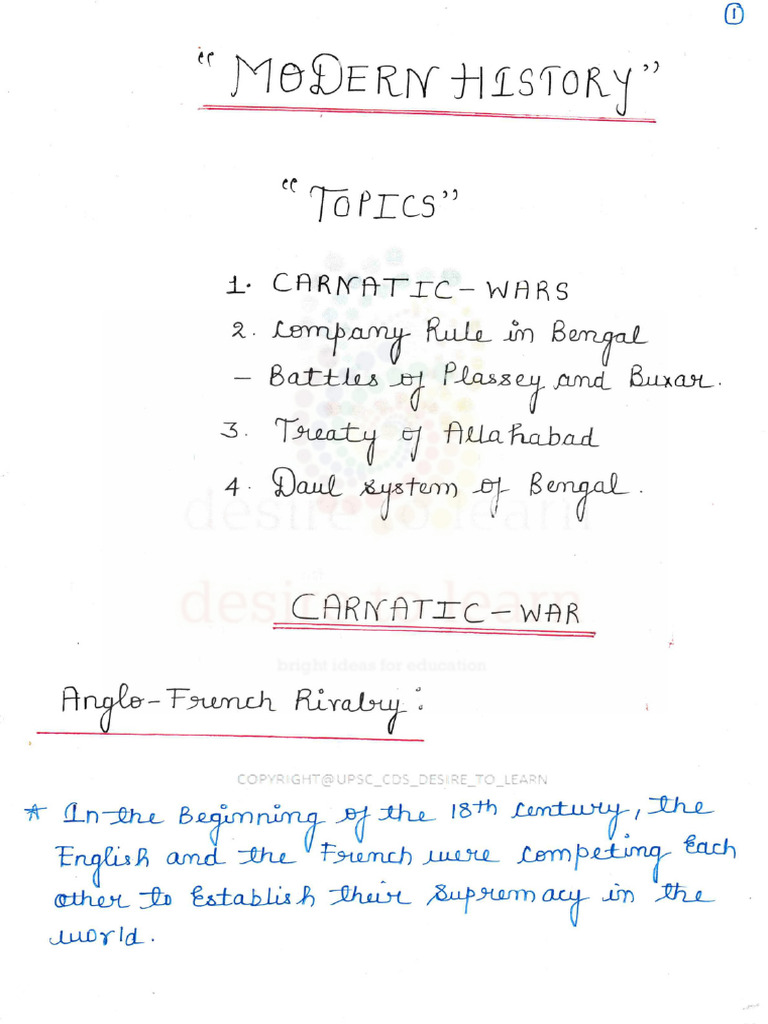 1
"MODERN HISTORY"
"TOPICS"
1. CARNATIC - WARS
2. Company Rule in Bengal
- Battles of Plassey and Buxar.
3. Treaty of Allahabad
4. Daul system of Bengal.
desire to learn
desire to learn
CARNATIC - WAR
bright ideas for education
Anglo-French Rivalry:
COPYRIGHT@UPSC_CDS_DESIRE_TO_LEARN
* In the Beginning of the 18th century, the
English and the French were competing Each
other to Establish their Supremacy in the
world.